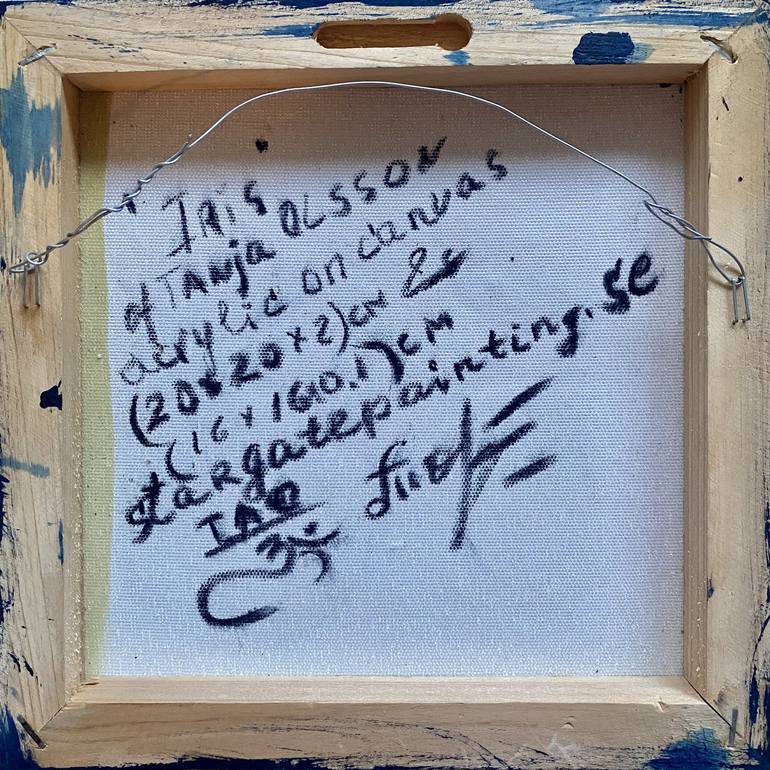 IRIS
of TANja OLSSON
acrylic on canvas
(20x20x2)cm &
(16x16x0.1)cm
stargatepainting.se
IAO